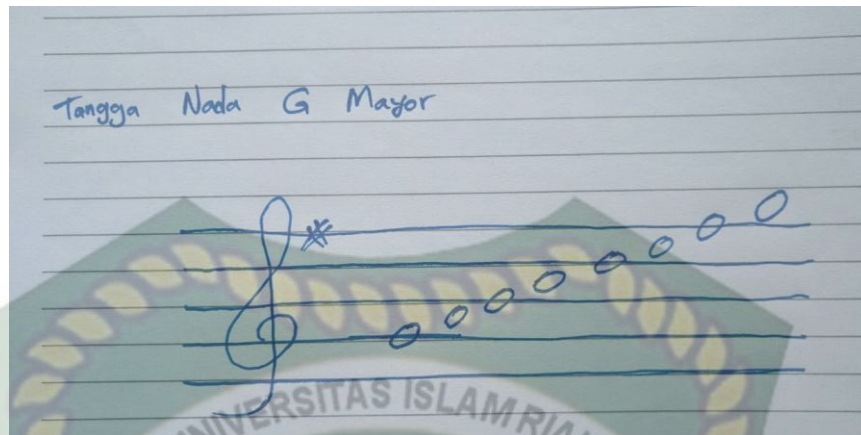 Tangga Nada G Mayor
UNIVERSITAS ISLAM RIAU